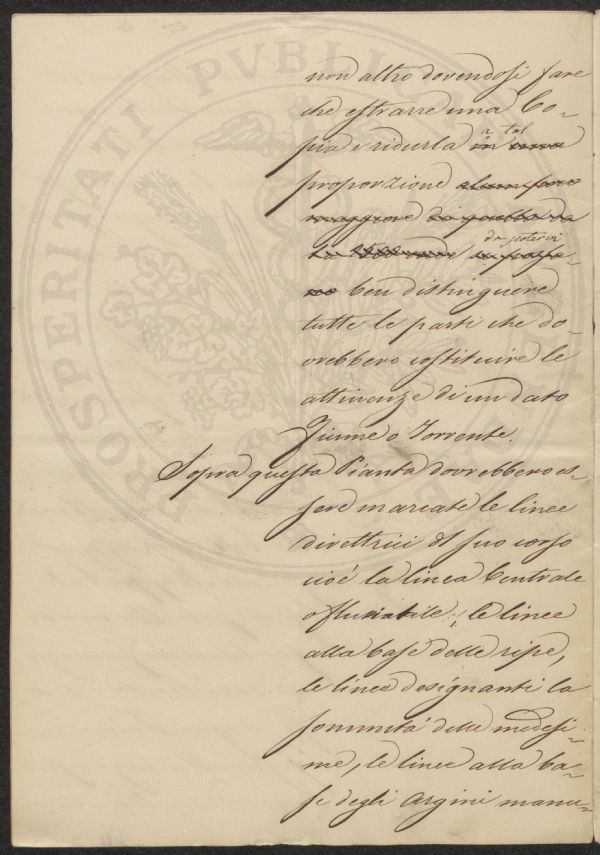 non altro dovendosi fare
che estrarre una Co-
pia e ridurla in una a tal
proporzione
maggiore di quella da
da potervi
no ben distinguere
tutte le parti che do-
vrebbero costituire le
attinenze di un dato
Fiume o Torrente.
Sopra questa Pianta dovrebbero es-
sere marcate le linee
direttrici del suo corso
cioé la linea Centrale
o fluviatile; le linee
alla base delle ripe,
le linee designanti la
sommità delle medesi-
me, le linee alla ba-
se degli argini manu-
PROSPERITATI PVBLICAE